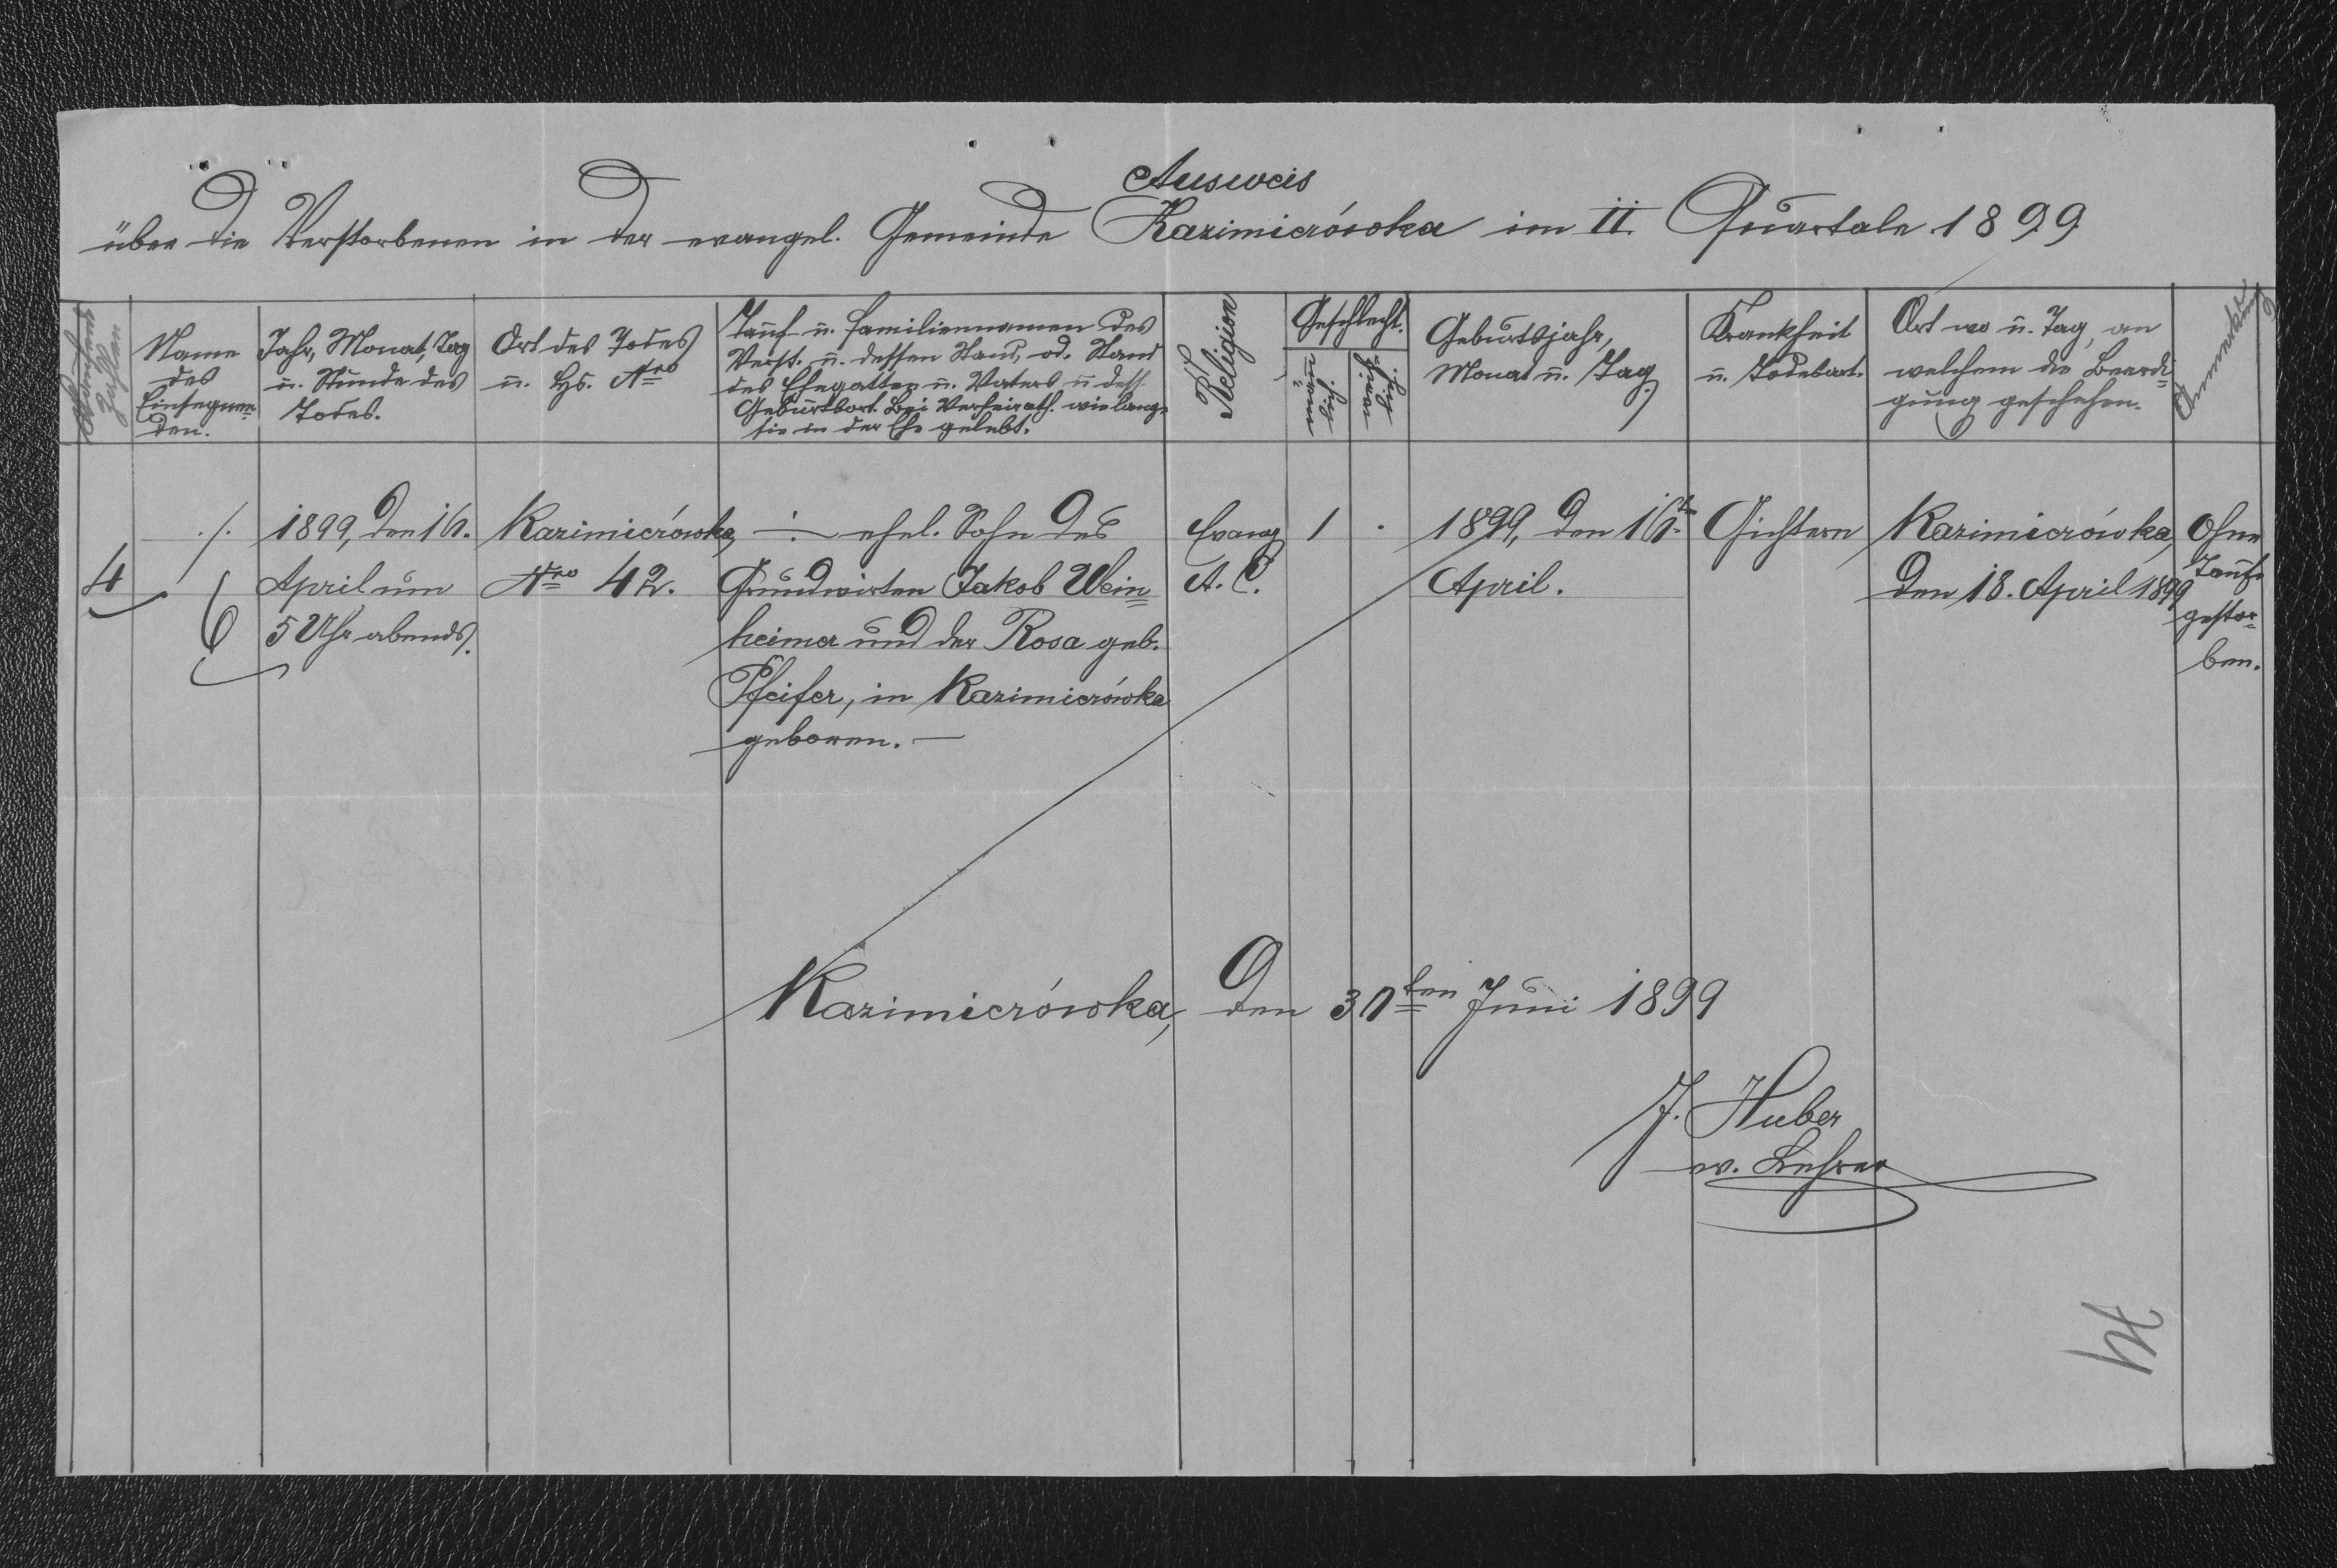 Ausweis
über die Verstorbenen in der evangel. Gemeinde Kazimierówka im II. Quartale 1899
Name
des
Einsegnen=
den.
Jahr, Monat, Tag
u. Stunde des
Todes.
Ort des Todes
u. Hs. Nro
Tauf- u. Familiennamen des
Verst. u. dessen Stand, od. Stand
des Ehegatten u. Vaters u. dess.
Geburtsort. Bei Verheirath. wie lange
sie in der Ehe gelebt.
Religion
Geschlecht.
männ=
lich
weib=
lich
Geburtsjahr,
Monat u. Tag.
Krankheit
u. Todesart.
Ort wo u. Tag, an
welchem die Beerdi=
gung geschehen.
Anmerkung
4
./.
6
1899, den 16.
April um
5 Uhr abends.
Kazimierówka,
Nro 42.
ehel. Sohn des
Grundwirten Jakob Wein=
heimer und der Rosa geb.
Pfeifer, in Kazimierówka
geboren. —
Evang
A. C.
1
.
1899, den 16.
April.
Gichtern
Kazimierówka,
den 18. April 1899
Ohne
Taufe
gestor=
ben.
Kazimierówka, den 30ten Juni 1899
J. Huber
ev. Lehrer